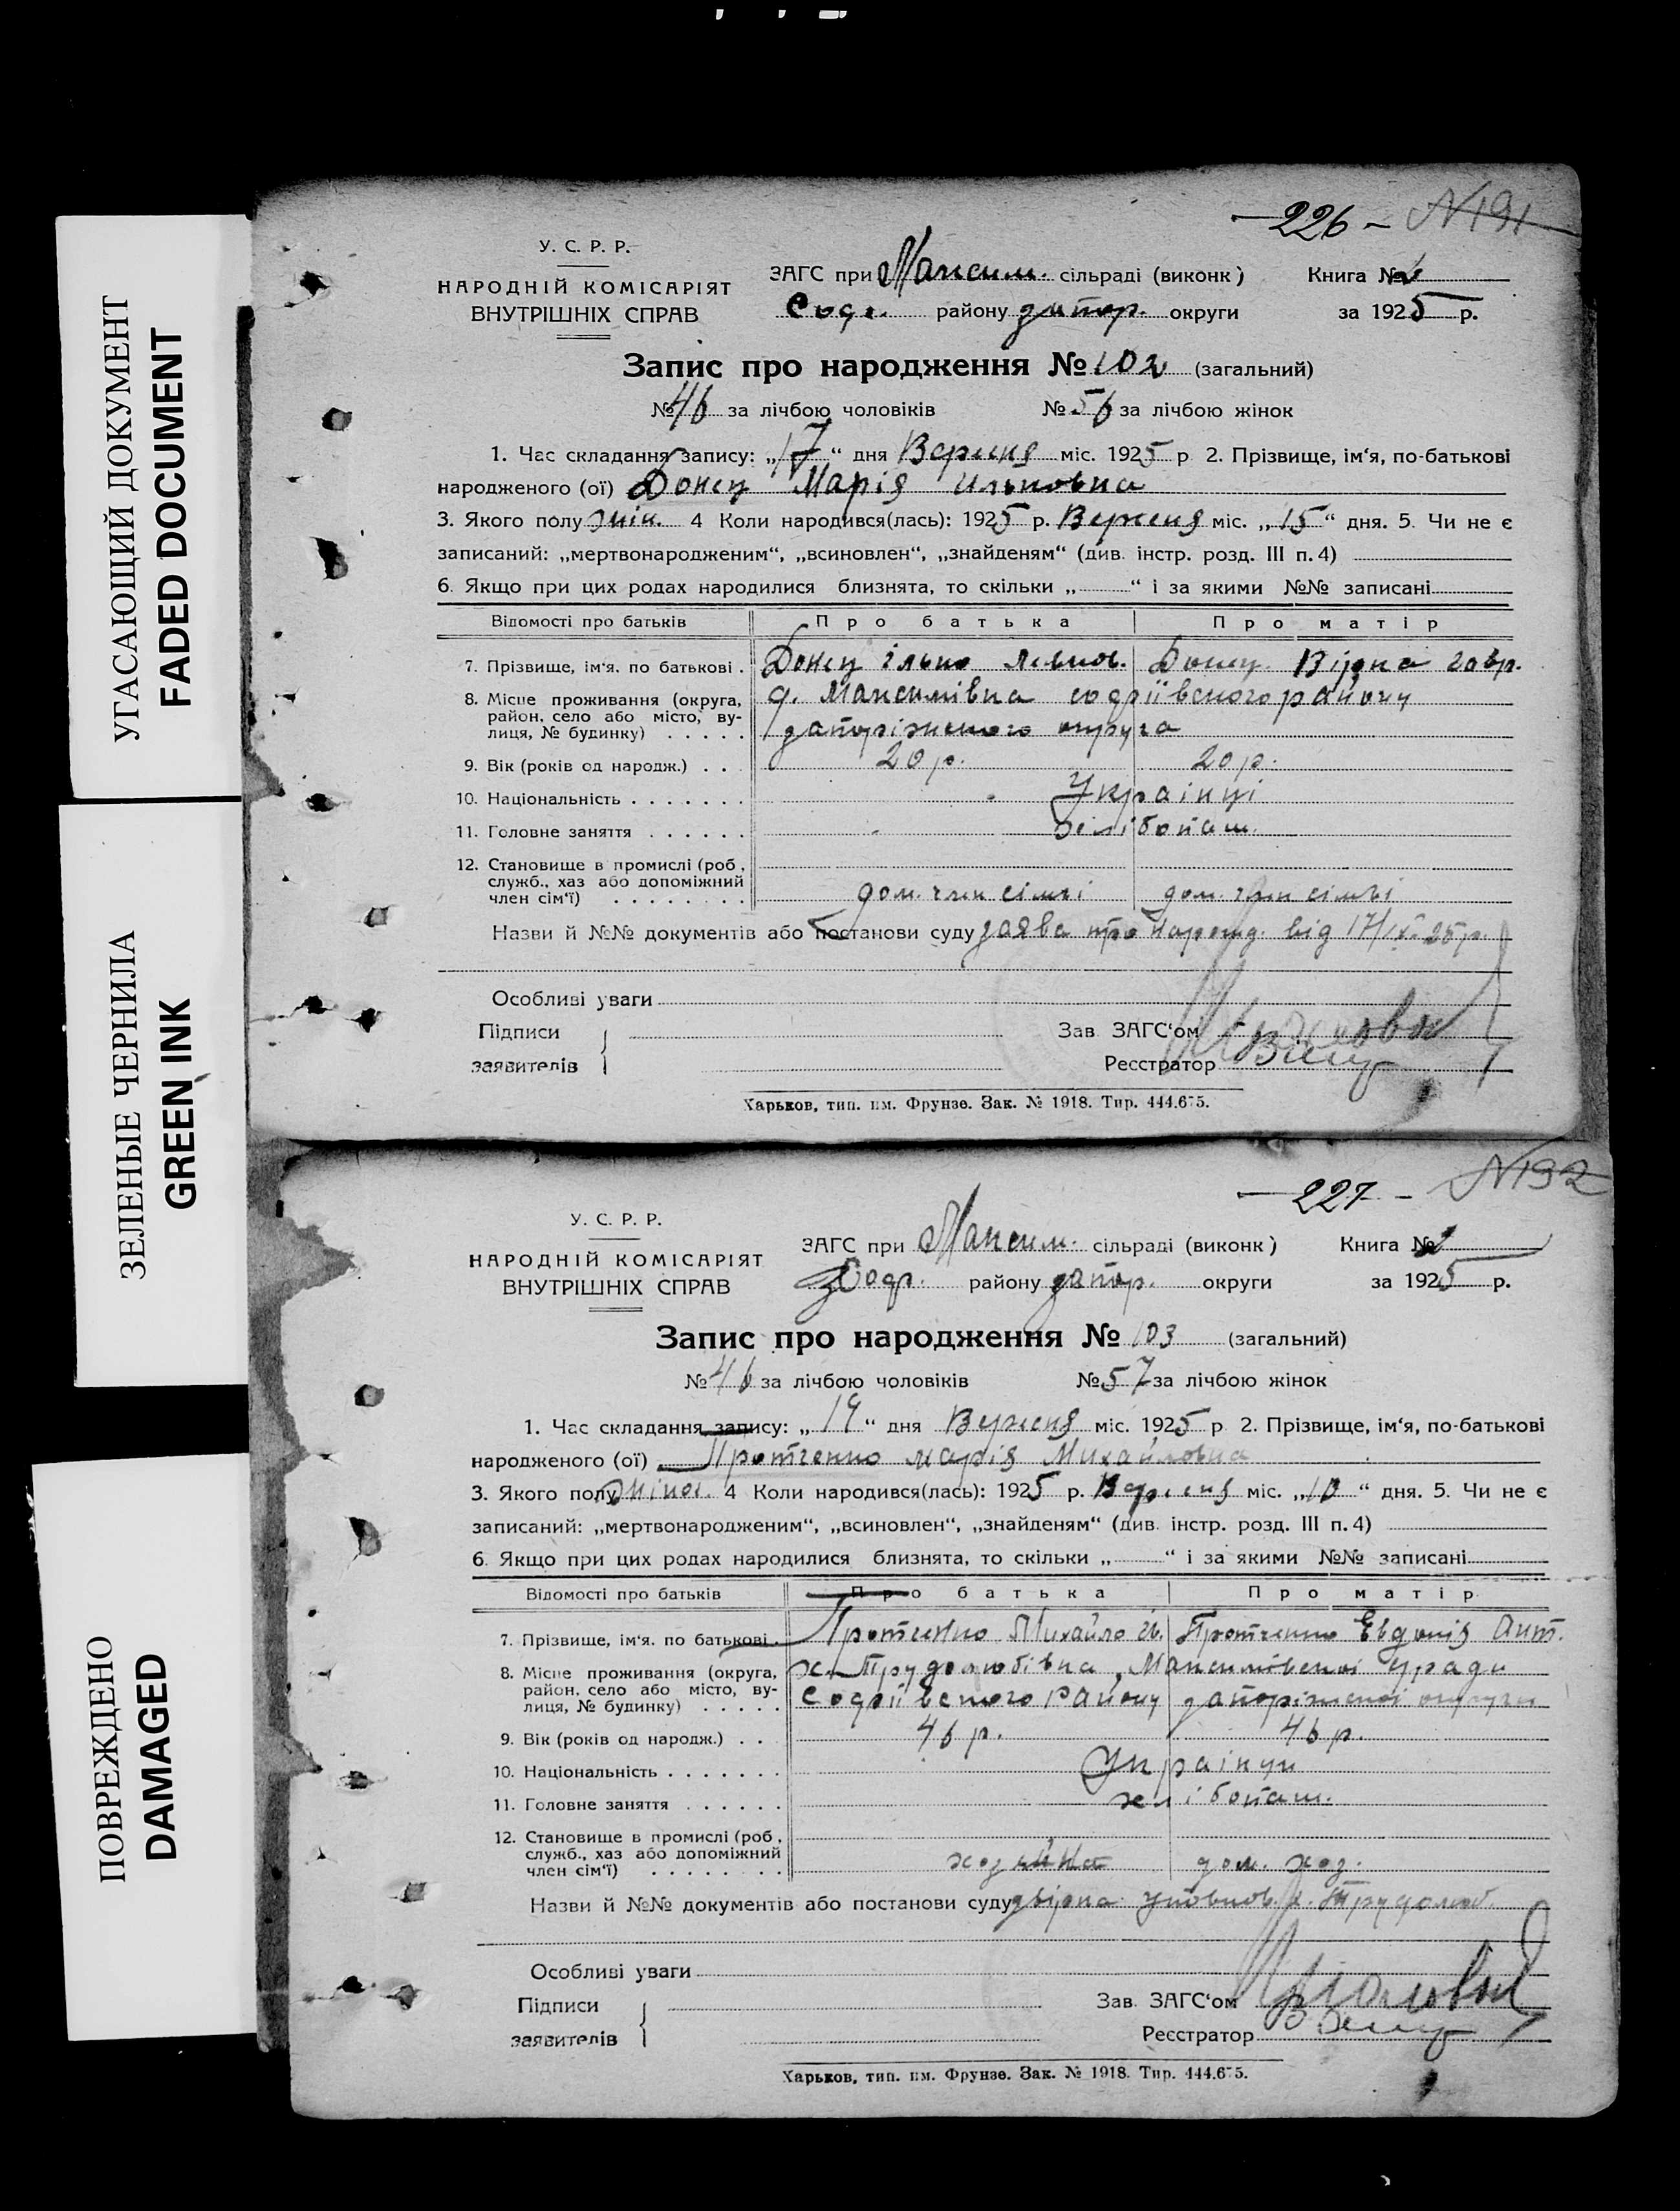 УГАСАЮЩИЙ ДОКУМЕНТ
FADED DOCUMENT
ЗЕЛЕНЫЕ ЧЕРНИЛА
GREEN INK
ПОВРЕЖДЕНО
DAMAGED
— 226 — N191
У. С. Р. Р.
НАРОДНІЙ КОМІСАРІЯТ
ВНУТРІШНІХ СПРАВ
ЗАГС при Максим. сільраді (виконк) Книга №
Соф. району запор. округи за 1925 р.
Запис про народження № 102 (загальний)
№ 46 за лічбою чоловіків № 56 за лічбою жінок
1. Час складання запису: „17“ дня Вересня міс. 1925 р 2. Прізвище, ім‘я, по-батькові
народженого (ої) Донец Марія Ильковна
3. Якого полу жін. 4 Коли народився(лась): 1925 р. Вересня міс. „15“ дня. 5. Чи не є
записаний: „мертвонародженим“, „всиновлен“, „знайденям“ (див. інстр. розд. III п. 4)
6. Якщо при цих родах народилися близнята, то скільки „ “ і за якими №№ записані
Відомості про батьків Про батька Про матір
7. Прізвище, ім‘я. по батькові . Донец Ілько Донец Вірка Гавр.
8. Місце проживання (округа, с. Максимівка софіівского району
район, село або місто, ву-
лиця, № будинку) . . . . . запоріжского округа
9. Вік (років од народж.) . . 20 р. 20 р.
10. Національність . . . . . . . Украінці
11. Головне заняття . . . . . . хлібопаш.
12. Становище в промислі (роб,
служб., хаз або допоміжний
член сім‘ї) . . . . . . . . дом. член сімьі дом. член сімьі
Назви й №№ документів або постанови суду заява про народ. від 17/ix-25 р.
Особливі уваги
Підписи Зав. ЗАГС‘ом
заявителів Реєстратор
Харьков, тип. им. Фрунзе. Зак. № 1918. Тир. 444.675.
— 227 — N192
У. С. Р. Р.
НАРОДНІЙ КОМІСАРІЯТ
ВНУТРІШНІХ СПРАВ
ЗАГС при Максим. сільраді (виконк) Книга №
Соф. району запор. округи за 1925 р.
Запис про народження № 103 (загальний)
№ 46 за лічбою чоловіків № 57 за лічбою жінок
1. Час складання запису: „19“ дня Вересня міс. 1925 р 2. Прізвище, ім‘я, по-батькові
народженого (ої) Протченко Марія Михайловна
3. Якого полу жіноч. 4 Коли народився(лась): 1925 р. Вересня міс. „10“ дня. 5. Чи не є
записаний: „мертвонародженим“, „всиновлен“, „знайденям“ (див. інстр. розд. III п. 4)
6. Якщо при цих родах народилися близнята, то скільки „ “ і за якими №№ записані
Відомості про батьків Про батька Про матір
7. Прізвище, ім‘я. по батькові . Протченко Михайло Ів. Протченко Евдокія Ант.
8. Місце проживання (округа, х. Трудолюбівка, Максимівскоі уради
район, село або місто, ву-
лиця, № будинку) . . . . . Софіівского Району запоріжскоі округи
9. Вік (років од народж.) . . 46 р. 46 р.
10. Національність . . . . . . . Украінци
11. Головне заняття . . . . . . хлібопаш.
12. Становище в промислі (роб,
служб., хаз або допоміжний
член сім‘ї) . . . . . . . . дом. хоз.
Назви й №№ документів або постанови суду уповнов. х. Трудолюб.
Особливі уваги
Підписи Зав. ЗАГС‘ом
заявителів Реєстратор
Харьков, тип. им. Фрунзе. Зак. № 1918. Тир. 444.675.